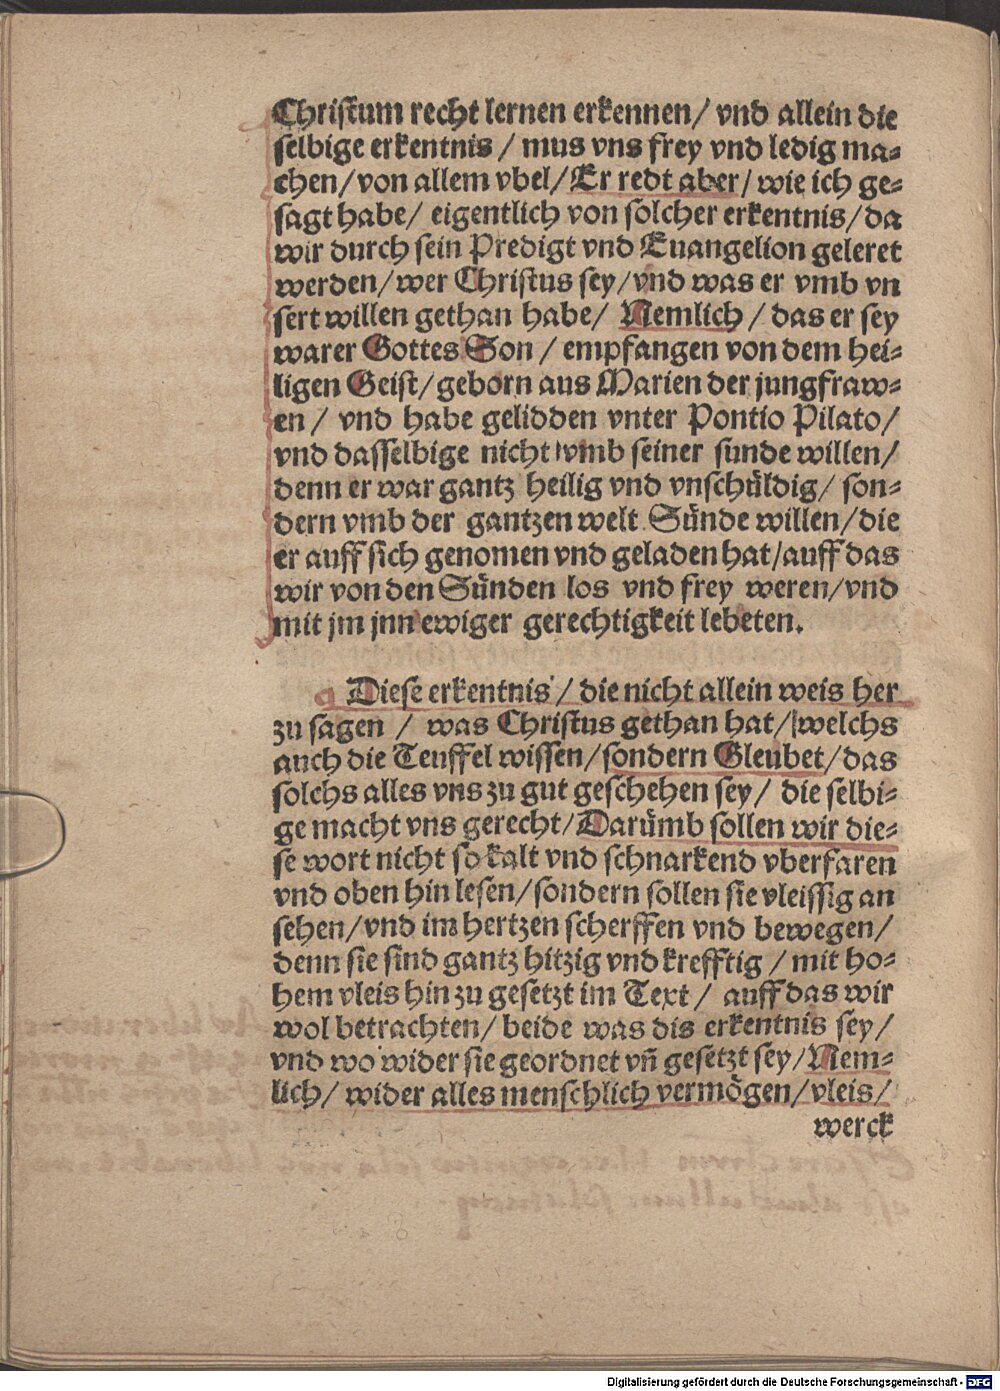 Christum recht lernen erkennen/ vnd allein die
selbige erkentnis / mus vns frey vnd ledig ma⸗
chen/ von allem vbel/ Er redt aber/ wie ich ge⸗
sagt habe/ eigentlich von solcher erkentnis/ da
wir durch sein Predigt vnd Euangelion geleret
werden/ wer Christus sey/ vnd was er vmb vn
sert willen gethan habe/ Nemlich / das er sey
warer Gottes Son / empfangen von dem hei⸗
ligen Geist/ geborn aus Marien der jungfraw⸗
en / vnd habe gelidden vnter Pontio Pilato/
vnd dasselbige nicht vmb seiner sunde willen/
denn er war gantz heilig vnd vnschüldig/ son⸗
dern vmb der gantzen welt Sünde willen/ die
er auff sich genomen vnd geladen hat/ auff das
wir von den Sünden los vnd frey weren/ vnd
mit jm jnn ewiger gerechtigkeit lebeten.
Diese erkentnis / die nicht allein weis her
zu sagen / was Christus gethan hat/ welchs
auch die Teuffel wissen/ sondern Gleubet/ das
solchs alles vns zu gut geschehen sey/ die selbi⸗
ge macht vns gerecht/ Darümb sollen wir die⸗
se wort nicht so kalt vnd schnarkend vberfaren
vnd oben hin lesen/ sondern sollen sie vleissig an
sehen/ vnd im hertzen scherffen vnd bewegen/
denn sie sind gantz hitzig vnd krefftig / mit ho⸗
hem vleis hin zu gesetzt im Text / auff das wir
wol betrachten/ beide was dis erkentnis sey/
vnd wo wider sie geordnet vñ gesetzt sey/ Nem⸗
lich/ wider alles menschlich vermögen/ vleis/
werck
Digitalisierung gefördert durch die Deutsche Forschungsgemeinschaft - DFG